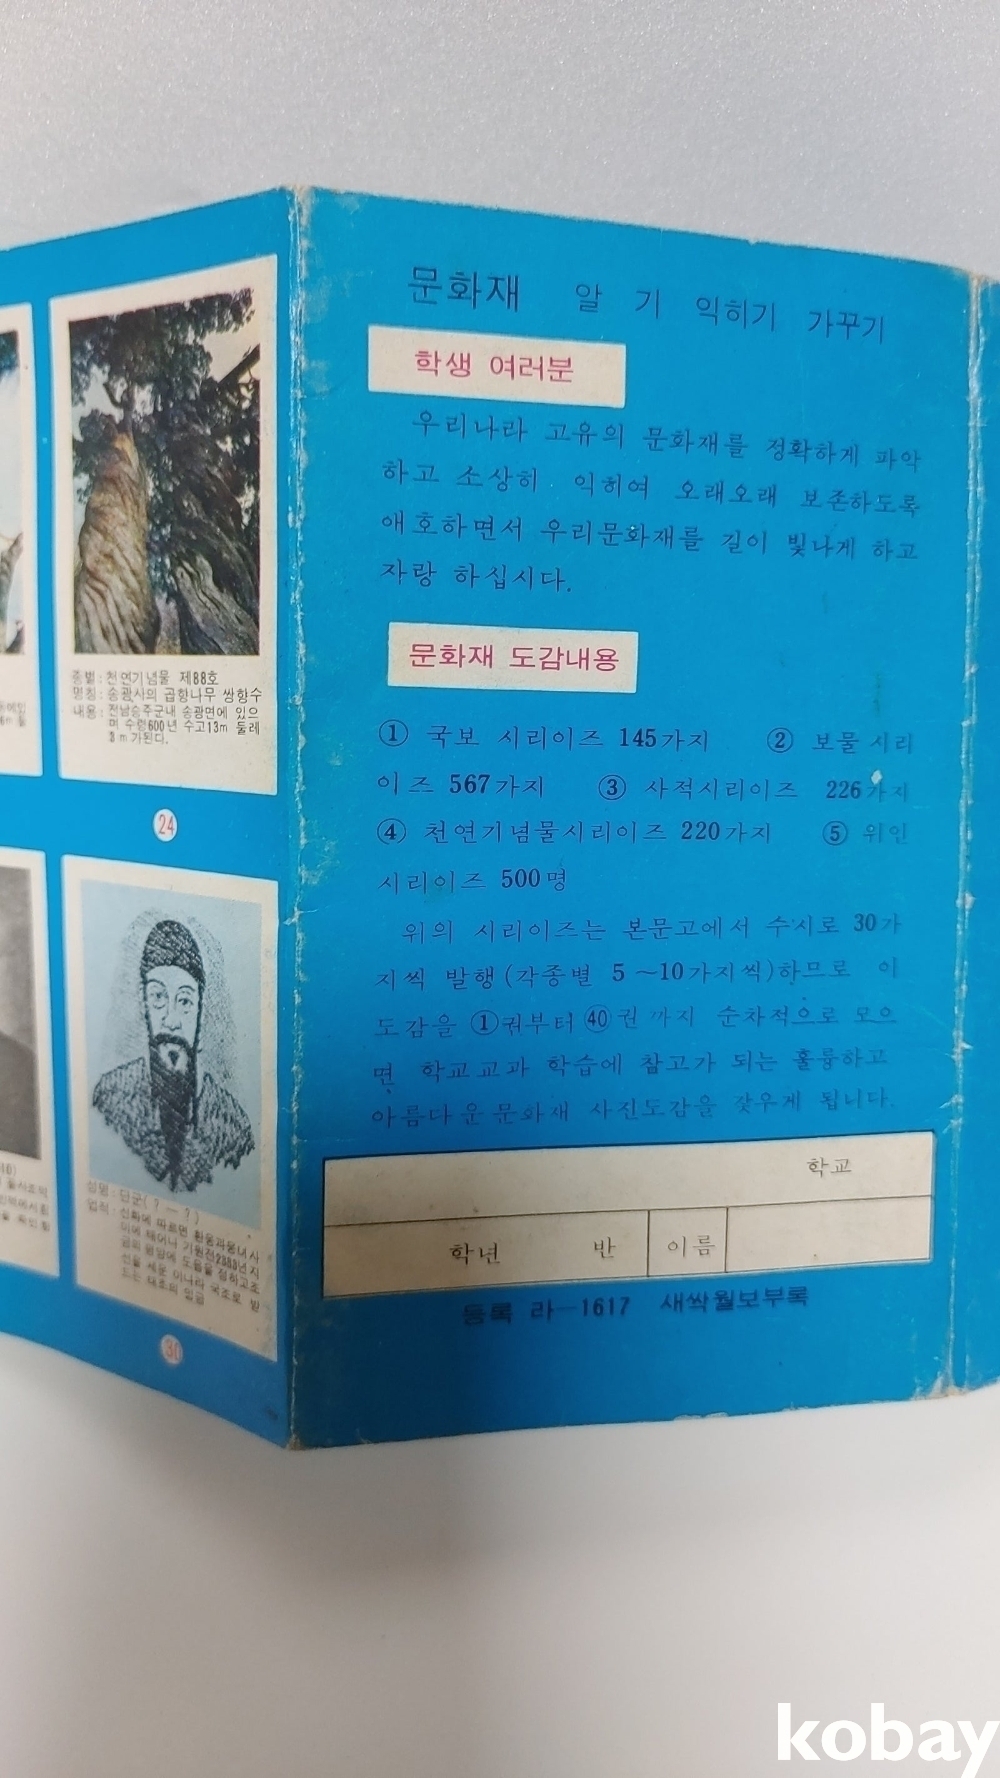 문화재 알 기 익히기 가꾸기
학생 여러분
우리나라 고유의 문화재를 정확하게 파악
하고 소상히 익히여 오래오래 보존하도록
애호하면서 우리문화재를 길이 빛나게 하고
자랑 하십시다.
문화재 도감내용
① 국보 시리이즈 145가지 ② 보물 시리
이즈 567가지 ③ 사적시리이즈 226가지
④ 천연기념물시리이즈 220가지 ⑤ 위인
시리이즈 500명
위의 시리이즈는 본문고에서 수시로 30가
지씩 발행(각종별 5~10가지씩)하므로 이
도감을 ①권부터 ㊵권 까지 순차적으로 모으
면 학교교과 학습에 참고가 되는 훌륭하고
아름다운 문화재 사진도감을 갖우게 됩니다.
학교
학년 반 이름
등록 라—1617 새싹월보부록
종별:천연기념물 제88호
명칭:송광사의 곱향나무 쌍향수
내용:전남승주군내 송광면에 있으
며 수령600년 수고13m 둘레
3m가된다.
24
성명:단군(?—?)
업적:신화에 따르면 환웅과웅녀사
이에 태어나 기원전2333년지
금의 평양에 도읍을 정하고조
선을 세운 이나라 국조로 받
드는 태초의 임금
30
kobay